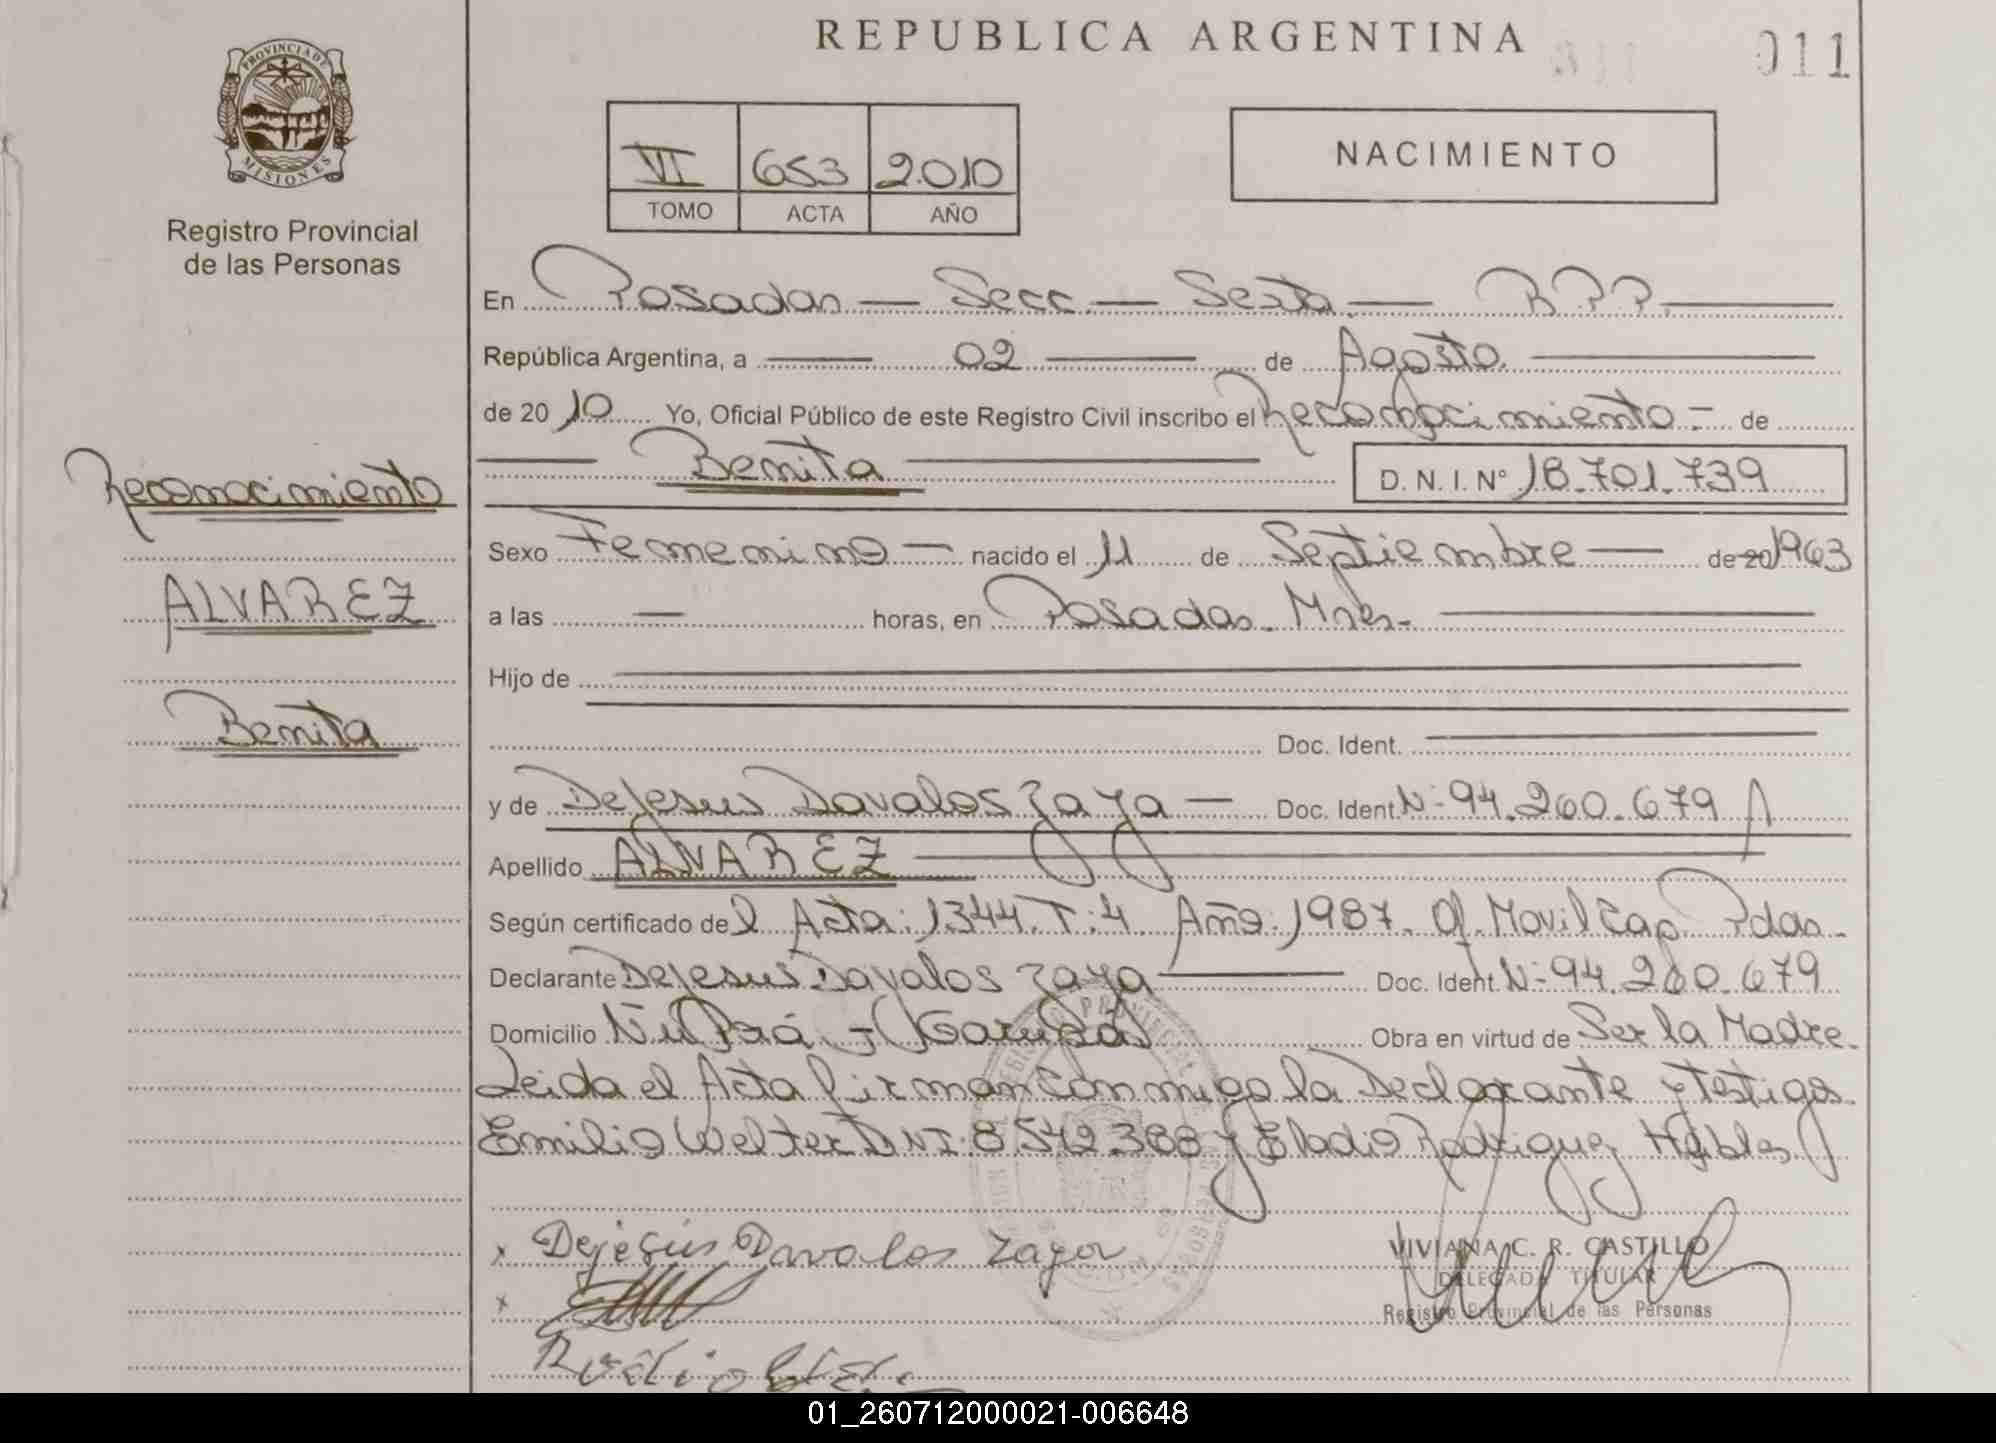 REPUBLICA ARGENTINA
011
PROVINCIA DE
MISIONES
Registro Provincial
de las Personas
VI 653 2.010
TOMO ACTA AÑO
NACIMIENTO
En Posadas — Secc. — Sexta. — R.P.P.
República Argentina, a — 02 — de Agosto.
de 20 10 Yo, Oficial Público de este Registro Civil inscribo el Reconocimiento - de
Benita
D. N. I. N° 18.701.739
Reconocimiento
ALVAREZ
Benita
Sexo Femenino — nacido el 11 de Septiembre — de 20 1963
a las — horas, en Posadas. Mnes.
Hijo de
Doc. Ident.
y de DeJesus Davalos Zaya — Doc. Ident. N- 94.260.679
Apellido ALVAREZ
Según certificado del Acta: 1344. T: 4 Año: 1987. Of. Movil Cap. Pdas.
Declarante DeJesus Davalos Zaya — Doc. Ident. N- 94.260.679
Domicilio Ñu Porá - Garupá Obra en virtud de Ser la Madre.
Leida el Acta firman conmigo la Declarante y testigos
Emilio Welter DNI: 8.542.388 y Eladio Rodriguez
Dejesús Davalos Zaya
VIVIANA C. R. CASTILLO
DELEGADA TITULAR
Registro Provincial de las Personas
01_260712000021-006648